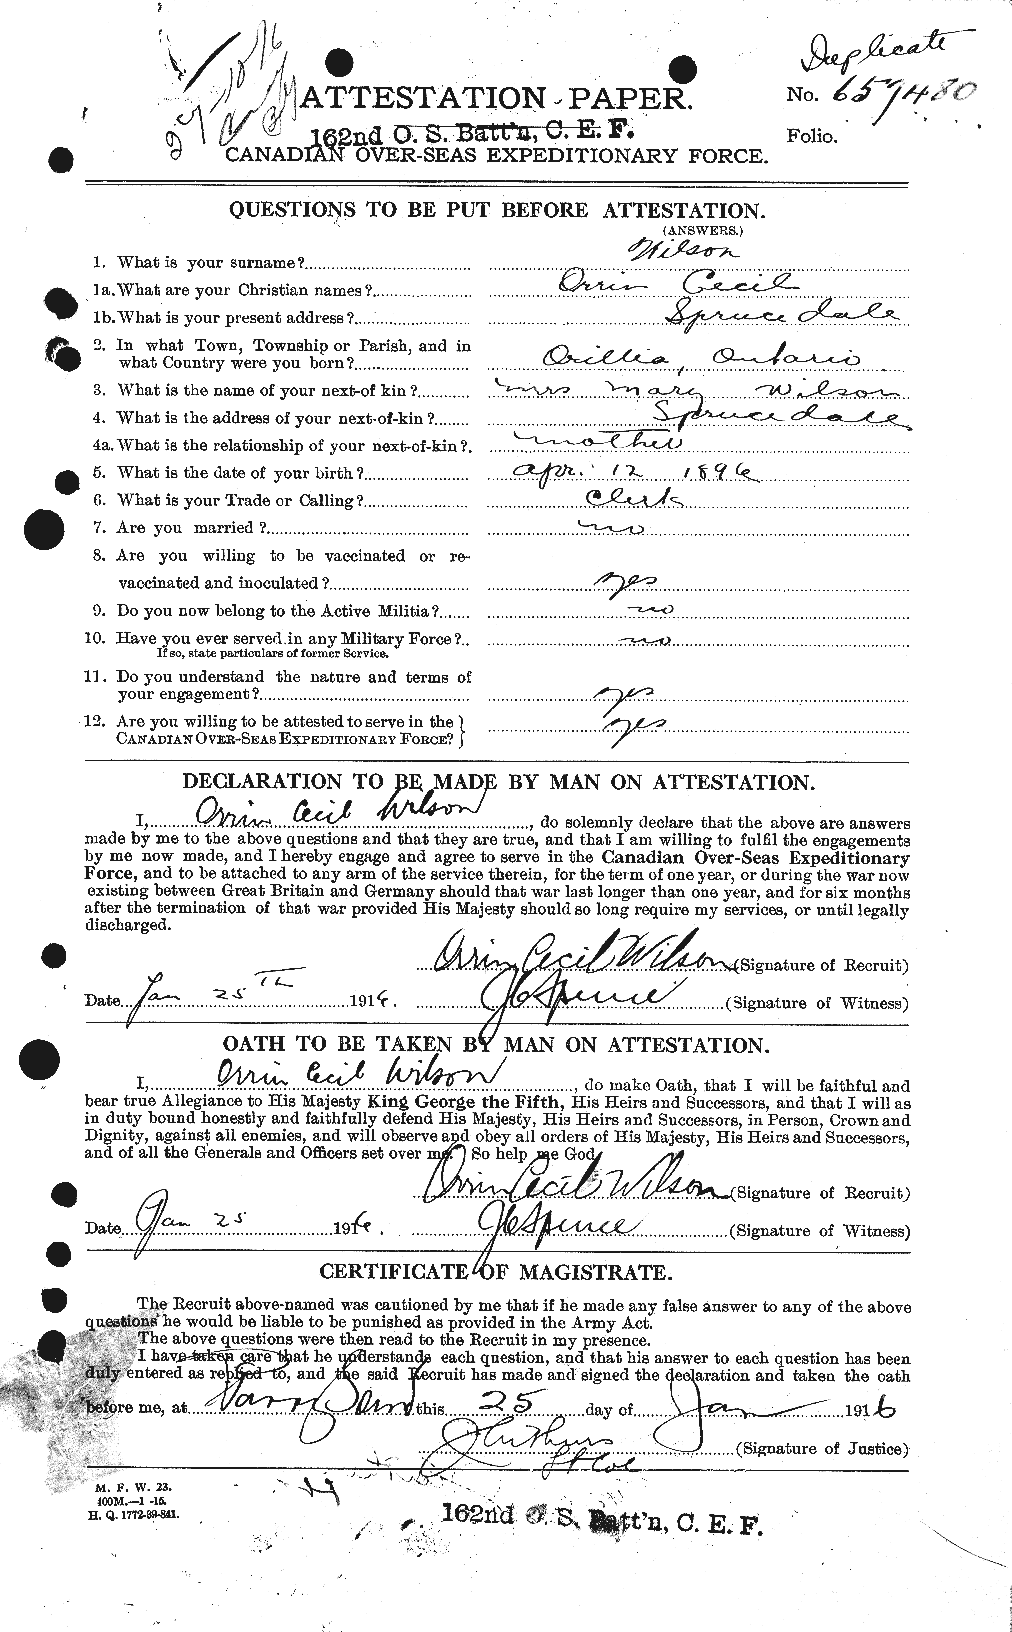 Duplicate
27/10/16
ATTESTATION PAPER.
No. 657480
162nd O. S. Batt'n, C. E. F.
Folio.
CANADIAN OVER-SEAS EXPEDITIONARY FORCE.
QUESTIONS TO BE PUT BEFORE ATTESTATION.
(ANSWERS.)
1. What is your surname? Wilson
1a. What are your Christian names? Orrin Cecil
1b. What is your present address? Sprucedale
2. In what Town, Township or Parish, and in
what Country were you born? Orillia, Ontario
3. What is the name of your next-of kin? Mrs Mary Wilson
4. What is the address of your next-of-kin? Sprucedale
4a. What is the relationship of your next-of-kin? mother
5. What is the date of your birth? Apr. 12 1896
6. What is your Trade or Calling? Clerk
7. Are you married? no
8. Are you willing to be vaccinated or re-
vaccinated and inoculated? yes
9. Do you now belong to the Active Militia? no
10. Have you ever served in any Military Force? no
If so, state particulars of former Service.
11. Do you understand the nature and terms of
your engagement? yes
12. Are you willing to be attested to serve in the
CANADIAN OVER-SEAS EXPEDITIONARY FORCE? yes
DECLARATION TO BE MADE BY MAN ON ATTESTATION.
I, Orrin Cecil Wilson, do solemnly declare that the above are answers
made by me to the above questions and that they are true, and that I am willing to fulfil the engagements
by me now made, and I hereby engage and agree to serve in the Canadian Over-Seas Expeditionary
Force, and to be attached to any arm of the service therein, for the term of one year, or during the war now
existing between Great Britain and Germany should that war last longer than one year, and for six months
after the termination of that war provided His Majesty should so long require my services, or until legally
discharged.
Orrin Cecil Wilson (Signature of Recruit)
Date Jan 25TH 1916. J C Spence (Signature of Witness)
OATH TO BE TAKEN BY MAN ON ATTESTATION.
I, Orrin Cecil Wilson, do make Oath, that I will be faithful and
bear true Allegiance to His Majesty King George the Fifth, His Heirs and Successors, and that I will as
in duty bound honestly and faithfully defend His Majesty, His Heirs and Successors, in Person, Crown and
Dignity, against all enemies, and will observe and obey all orders of His Majesty, His Heirs and Successors,
and of all the Generals and Officers set over me. So help me God.
Orrin Cecil Wilson (Signature of Recruit)
Date Jan 25 1916. J C Spence (Signature of Witness)
CERTIFICATE OF MAGISTRATE.
The Recruit above-named was cautioned by me that if he made any false answer to any of the above
questions he would be liable to be punished as provided in the Army Act.
The above questions were then read to the Recruit in my presence.
I have taken care that he understands each question, and that his answer to each question has been
duly entered as replied to, and the said Recruit has made and signed the declaration and taken the oath
before me, at Parry Sound this 25 day of Jan 1916
(Signature of Justice)
Lt Col
M. F. W. 23.
400M.—1-16.
H. Q. 1772-39-841.
162nd O. S. Batt'n, C. E. F.